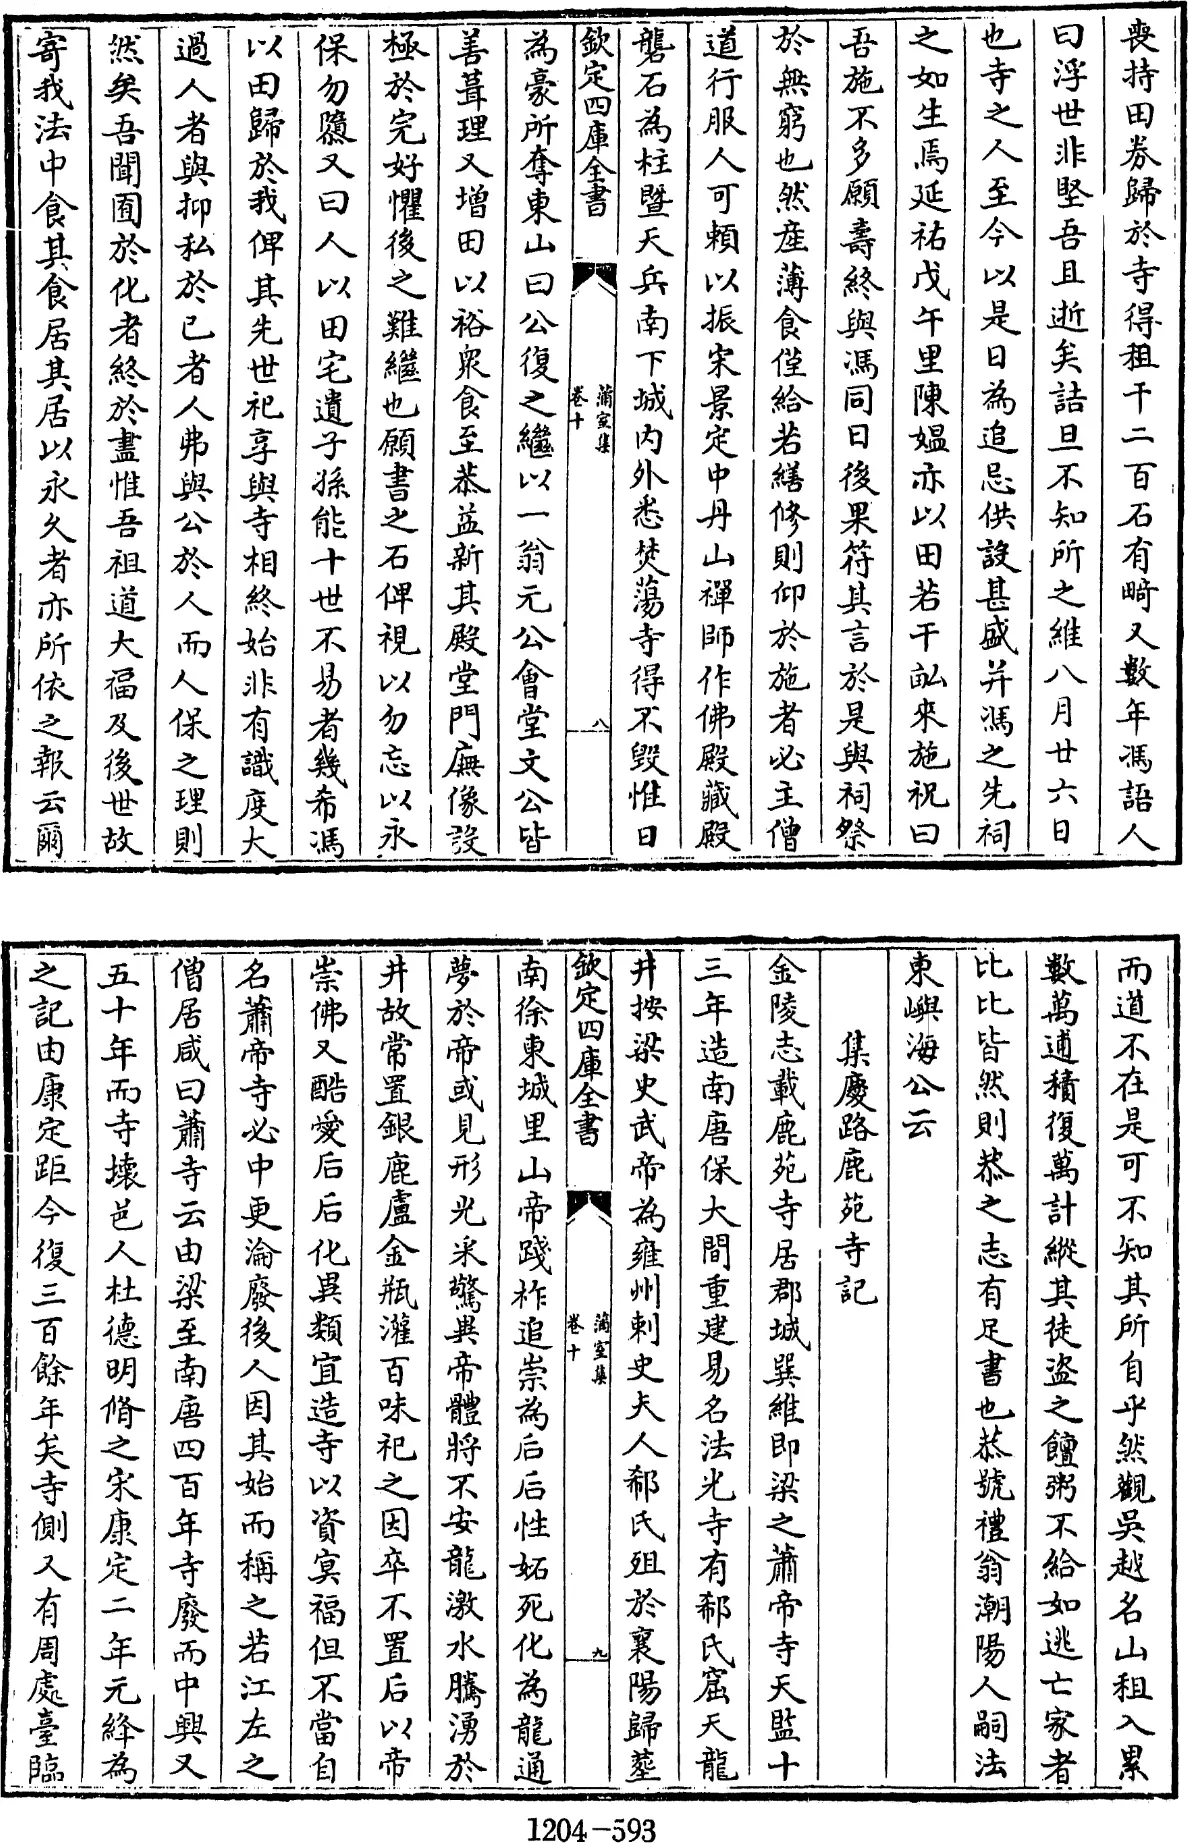 喪持田券歸於寺得租干二百石有畸又數年馮語人
曰浮世非堅吾且逝矣詰旦不知所之維八月廿六日
也寺之人至今以是日為追忌供設甚盛并馮之先祠
之如生焉延祐戊午里陳媪亦以田若干畆來施祝曰
吾施不多願壽終與馮同日後果符其言於是與祠祭
於無窮也然産薄食僅給若繕修則仰於施者必主僧
道行服人可頼以振宋景定中丹山禪師作佛殿藏殿
礱石為柱暨天兵南下城内外悉焚蕩寺得不毀惟日
欽定四庫全書
蒲室集
卷十
八
為豪所奪東山曰公復之繼以一翁元公會堂文公皆
善葺理又增田以裕衆食至恭益新其殿堂門廡像設
極於完好懼後之難繼也願書之石俾視以勿忘以永
保勿隳又曰人以田宅遺子孫能十世不易者幾希馮
以田歸於我俾其先世祀享與寺相終始非有識度大
過人者與抑私於已者人弗與公於人而人保之理則
然矣吾聞囿於化者終於盡惟吾祖道大福及後世故
寄我法中食其食居其居以永久者亦所依之報云爾
而道不在是可不知其所自乎然觀吳越名山租入累
數萬逋積復萬計縱其徒盜之饘粥不給如逃亡家者
比比皆然則恭之志有足書也恭號禮翁潮陽人嗣法
東嶼海公云
集慶路鹿苑寺記
金陵志載鹿苑寺居郡城巽維即梁之蕭帝寺天監十
三年造南唐保大間重建易名法光寺有郗氏窟天龍
井按梁史武帝為雍州刺史夫人郗氏殂於襄陽歸塟
欽定四庫全書
蒲室集
卷十
九
南徐東城里山帝踐祚追崇為后后性妬死化為龍通
夢於帝或見形光采驚異帝體將不安龍激水騰湧於
井故常置銀鹿盧金瓶灌百味祀之因卒不置后以帝
崇佛又酷愛后后化異類宜造寺以資冥福但不當自
名蕭帝寺必中更淪廢後人因其始而稱之若江左之
僧居咸曰蕭寺云由梁至南唐四百年寺廢而中興又
五十年而寺壊邑人杜德明脩之宋康定二年元絳為
之記由康定距今復三百餘年矣寺側又有周處臺臨
1204-593